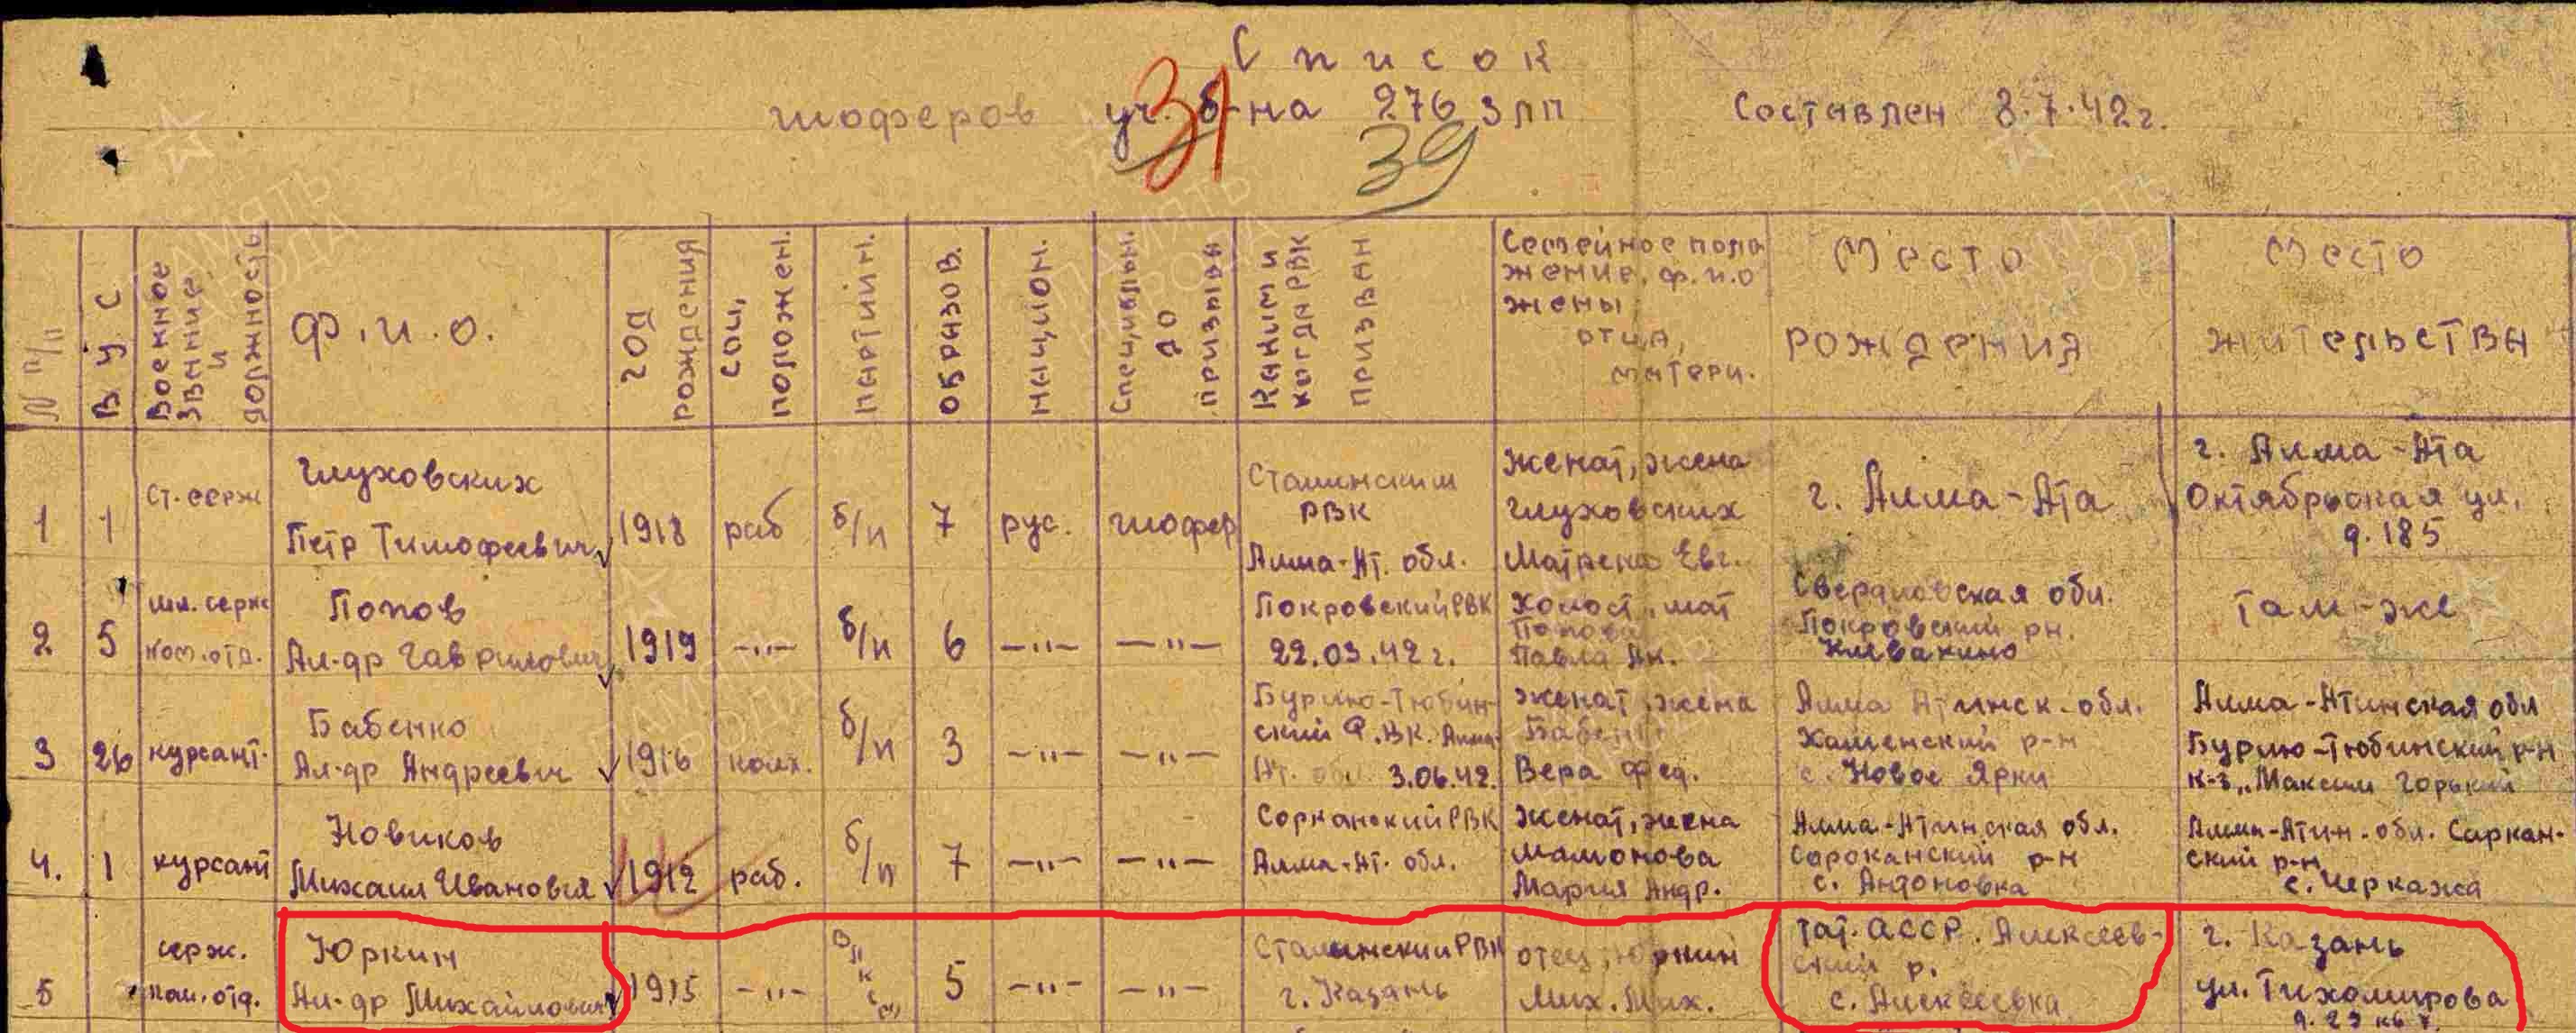 Список
шоферов уч. б-на 276 зпп Составлен 8.7.42г.
31
39
N п/п
В У С
Военное звание и должность
Ф.И.О.
год рождения
соц. положен.
партийн.
образов.
национ.
Специальн. до призыва
Каким и когда РВК призван
Семейное поло
жение, ф.и.о
жены,
отца,
матери.
Место
рождения
Место
жительства
1 1 Ст. серж Глуховских
Петр Тимофеевич 1918 раб б/п 7 рус. шофер
Сталинским
РВК
Алма-Ат. обл.
женат, жена
Глуховских
Матрена Евг.
г. Алма-Ата
г. Алма-Ата
Октябрьская ул.
д. 185
2 5 мл. серж
ком. отд.
Попов
Ал-др Гаврилович 1919 -"- б/п 6 -"- -"-
Покровский РВК
22.03.42г.
Холост, мат
Попова
Павла Як.
Свердловская обл.
Покровский рн.
Клевакино
Там-же
3 26 курсант.
Бабенко
Ал-др Андреевич 1916 колх. б/п 3 -"- -"-
Бурлю-Тюбин-
ский Р.ВК. Алма-
Ат. обл. 3.06.42.
женат, жена
Бабенко
Вера Фед.
Алма Атинск. обл.
р-н
с. Новое Ярки
Алма-Атинская обл
Бурлю-Тюбинский р-н
к-з „Максим Горький
4. 1 курсант
Новиков
Михаил Иванович 1912 раб. б/п 7 -"- -"-
Сорканский РВК
Алма-Ат. обл.
женат, жена
Мамонова
Мария Андр.
Алма-Атинская обл.
Сароканский р-н
с. Антоновка
Алма-Атин. обл. Саркан-
ский р-н
с. Черкажа
5 серж.
пом. отд.
Юркин
Ал-др Михайлович 1915 -"- 5 -"- -"-
Сталинский РВК
г. Казань
отец, Юркин
Мих. Мих.
тат. АССР. Алексеев-
ский р.
с. Алексеевка
г. Казань
ул. Тихомирова